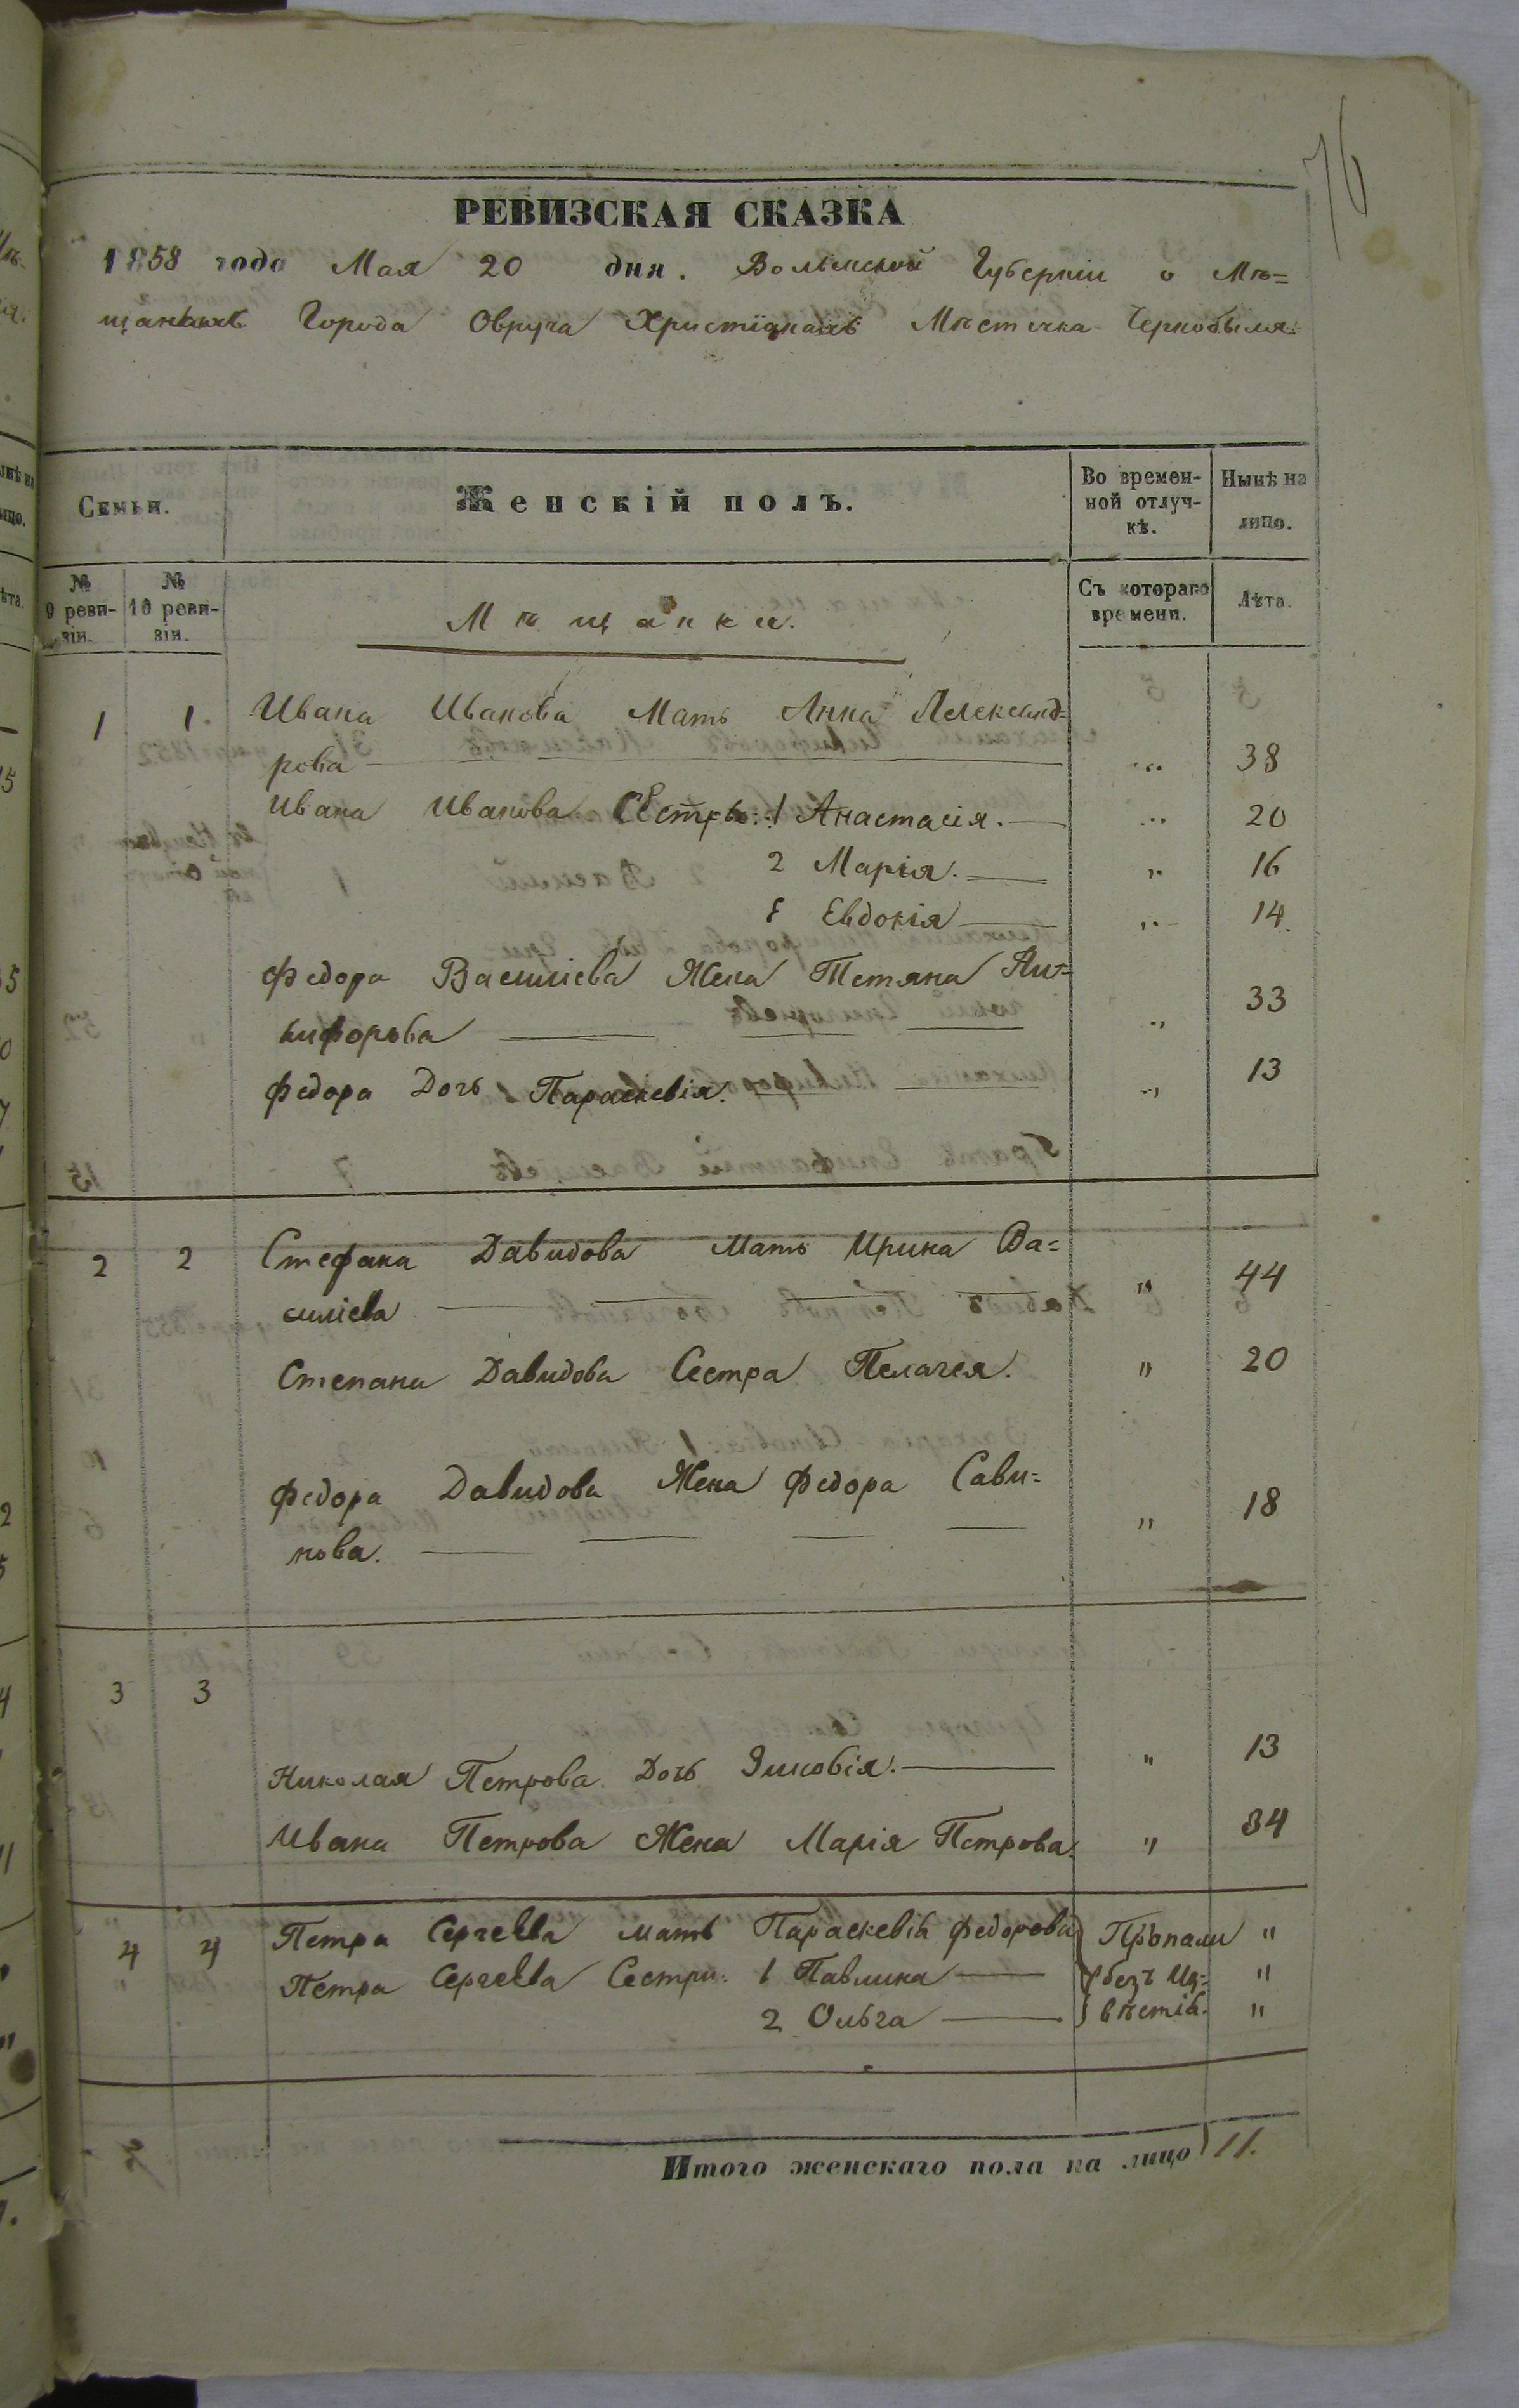 76
РЕВИЗСКАЯ СКАЗКА
1858 года Мая 20 дня. Волынской Губерніи о Мѣ=
щанахъ Города Овруча Христіанахъ Мѣстечка Чернобыля.
Семьи.
Женскій полъ.
Во времен-
ной отлуч-
кѣ.
Нынѣ на
лицо.
№
9 реви-
зіи.
№
10 реви-
зіи.
Мѣщанки.
Съ котораго
времени.
Лѣта.
1 1. Ивана Иванова Мать Анна Александ=
рова „ 38
Ивана Иванова Сестры: 1 Анастасія. „ 20
2 Марія. „ 16
3 Евдокія „ 14.
Федора Василіева Жена Тетяна Ни=
кифорова „ 33
Федора Дочь Параскевія. „ 13
2 2 Стефана Давидова Мать Ирина Ва=
силіева „ 44
Степана Давидова Сестра Пелагея. „ 20
Федора Давидова Жена Федора Сави=
нова. „ 18
3 3
Николая Петрова Дочь Зиновія. „ 13
Ивана Петрова Жена Марія Петрова. „ 34
4 4 Петра Сергеева мать Параскевія Федорова Пропали „
Петра Сергеева Сестри: 1 Павлина безъ Из= „
2 Ольга вѣстія. „
Итого женскаго пола на лицо 11.